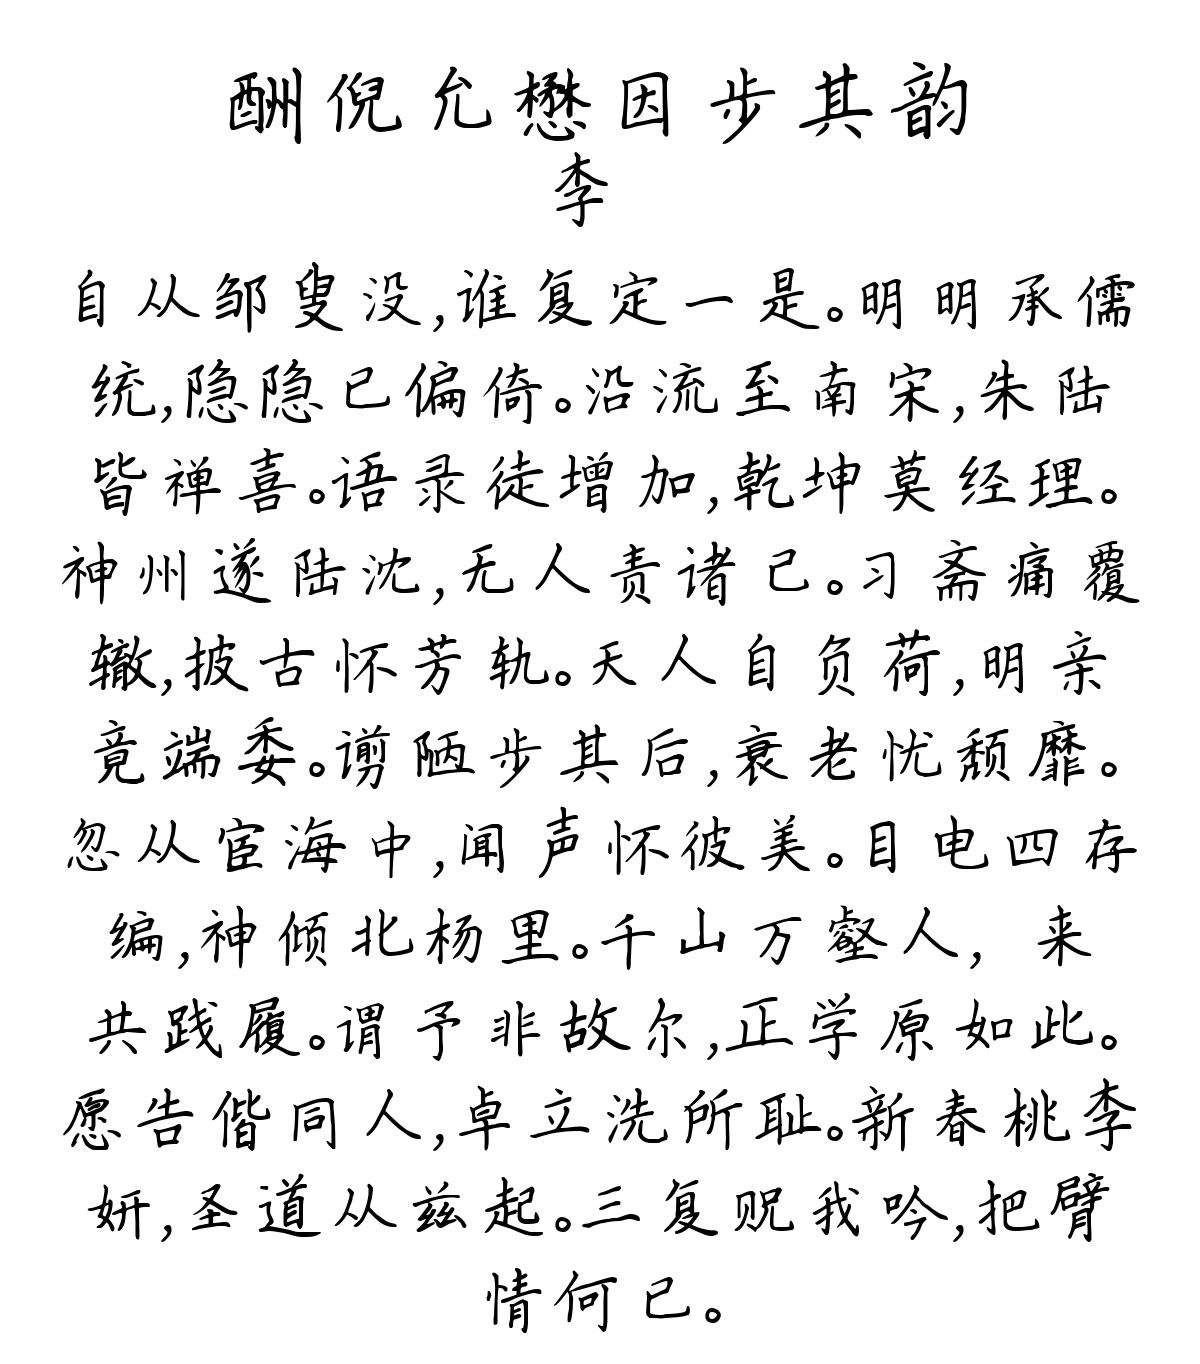 酬倪允懋因步其韵
李
自从邹叟没,谁复定一是。明明承儒
统,隐隐已偏倚。沿流至南宋,朱陆
皆禅喜。语录徒增加,乾坤莫经理。
神州遂陆沈,无人责诸己。习斋痛覆
辙,披古怀芳轨。天人自负荷,明亲
竟端委。谫陋步其后,衰老忧颓靡。
忽从宦海中,闻声怀彼美。目电四存
编,神倾北杨里。千山万壑人，来
共践履。谓予非故尔,正学原如此。
愿告偕同人,卓立洗所耻。新春桃李
妍,圣道从兹起。三复贶我吟,把臂
情何已。